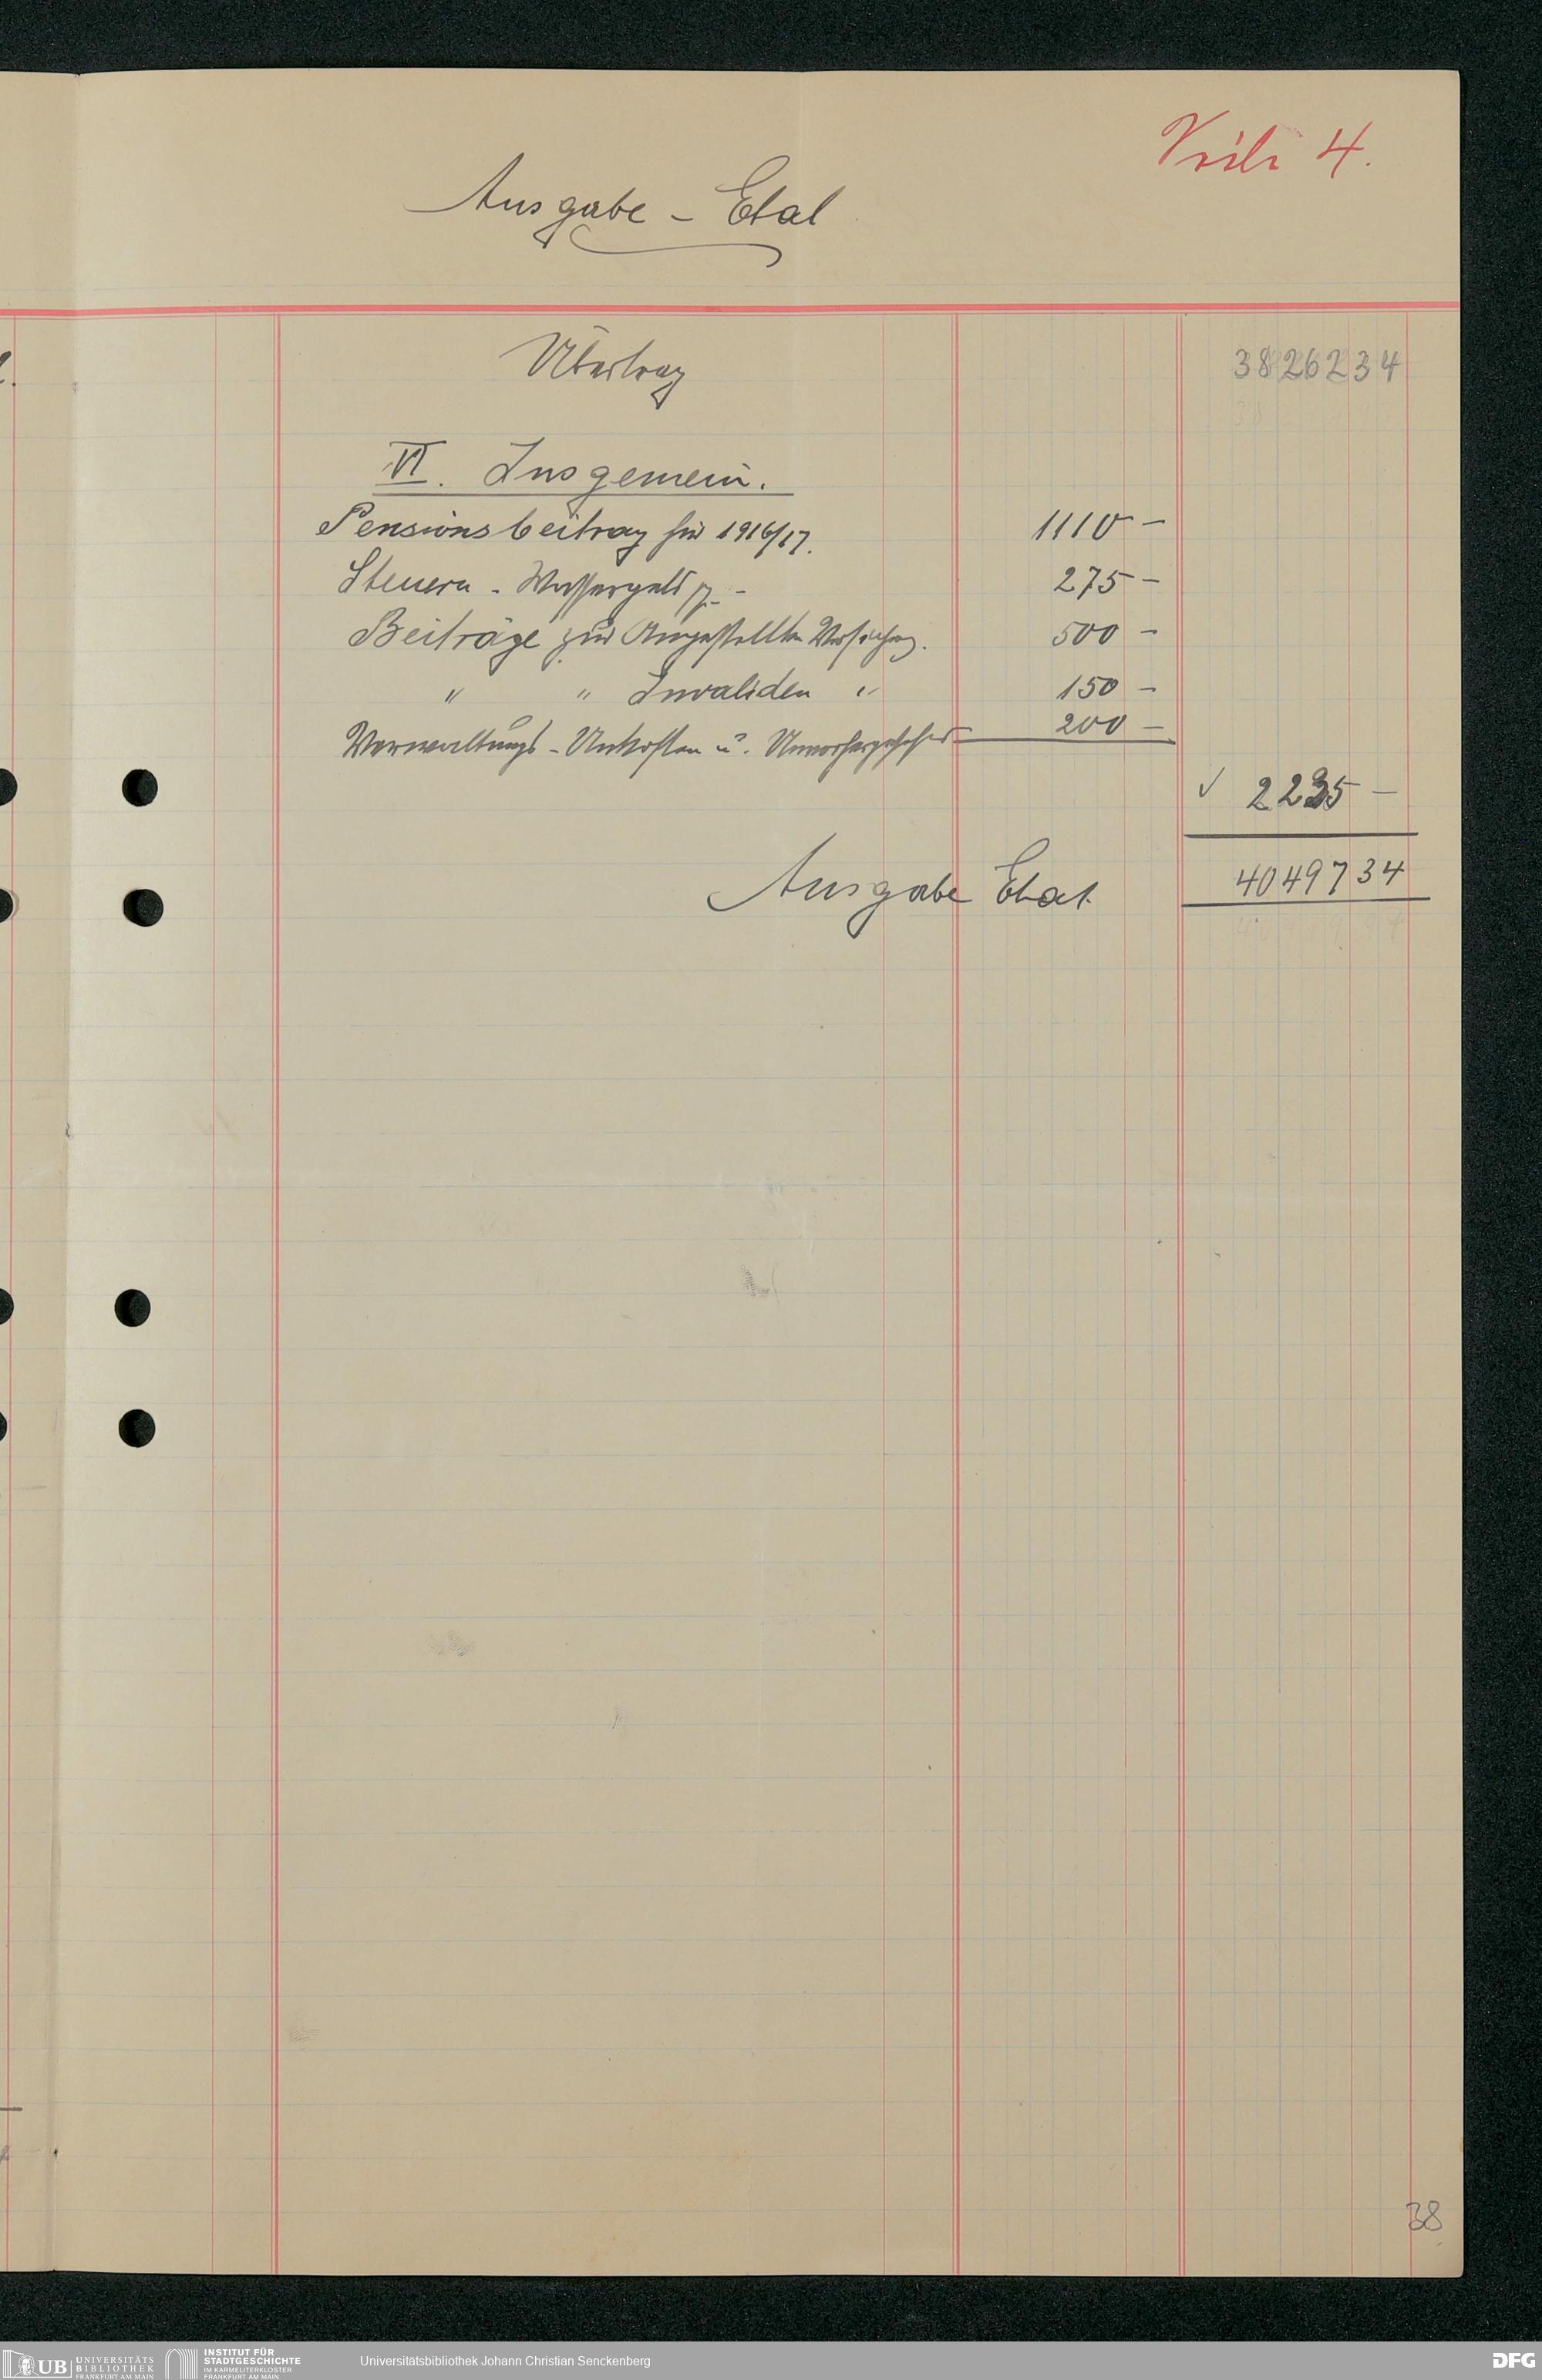 Seite 4.
Ausgabe - Etat
Übertrag 38262 34
VI. Insgemein.
Pensionsbeitrag für 1916/17. 1110 -
Steuern - Wassergeld pp. - 275 -
Beiträge zur Angestellten Versicherg. 500 -
" " Invaliden " 150 -
Verwaltungs - Unkosten u. Unvorhergesehenes 200 -
✓ 2235 -
Ausgabe Etat. 40497 34
38
UB UNIVERSITÄTS
BIBLIOTHEK
FRANKFURT AM MAIN
INSTITUT FÜR
STADTGESCHICHTE
IM KARMELITERKLOSTER
FRANKFURT AM MAIN
Universitätsbibliothek Johann Christian Senckenberg
DFG